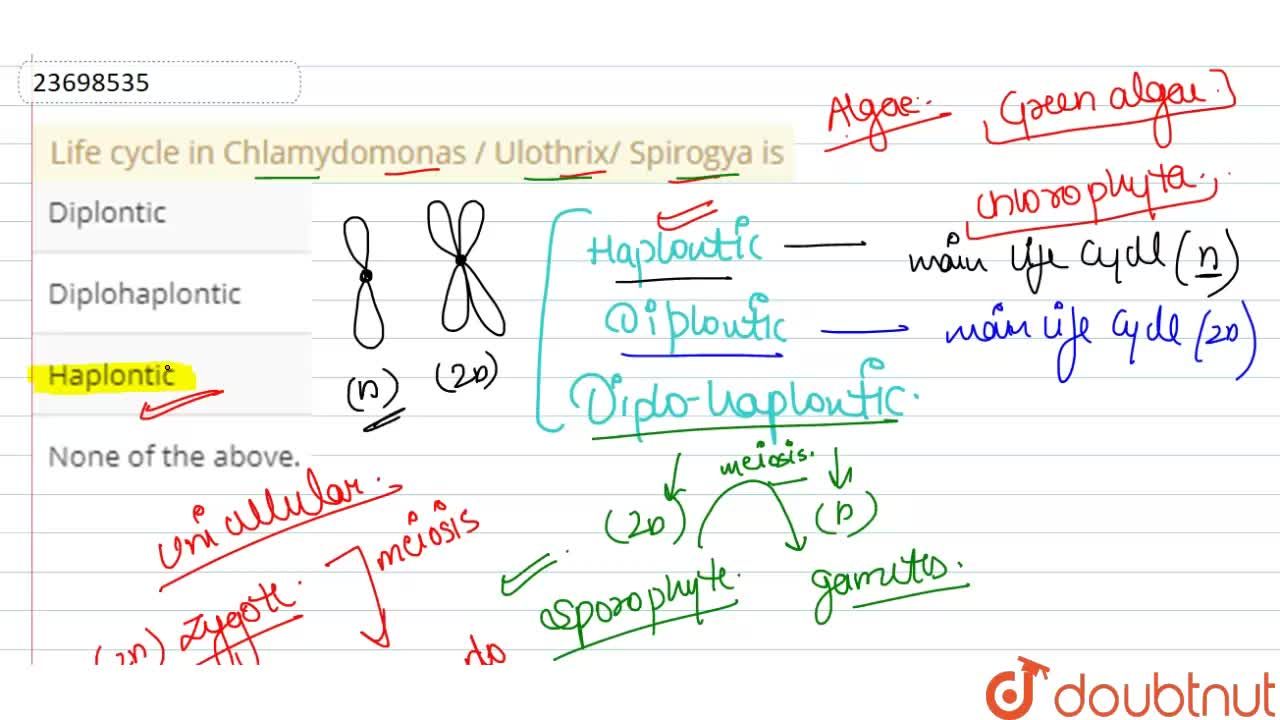 23698535
Algae:- (Green algae)
Life cycle in Chlamydomonas / Ulothrix/ Spirogya is
chlorophyta.
Diplontic
Haplontic — main life cycle (n)
Diplohaplontic
Diplontic — main life cycle (2n)
Haplontic
(n) (2n)
Diplo-haplontic.
None of the above.
meiosis.
unicellular.
meiosis
(2n) (n)
sporophyte. gametes.
(2n) zygote.
no
doubtnut